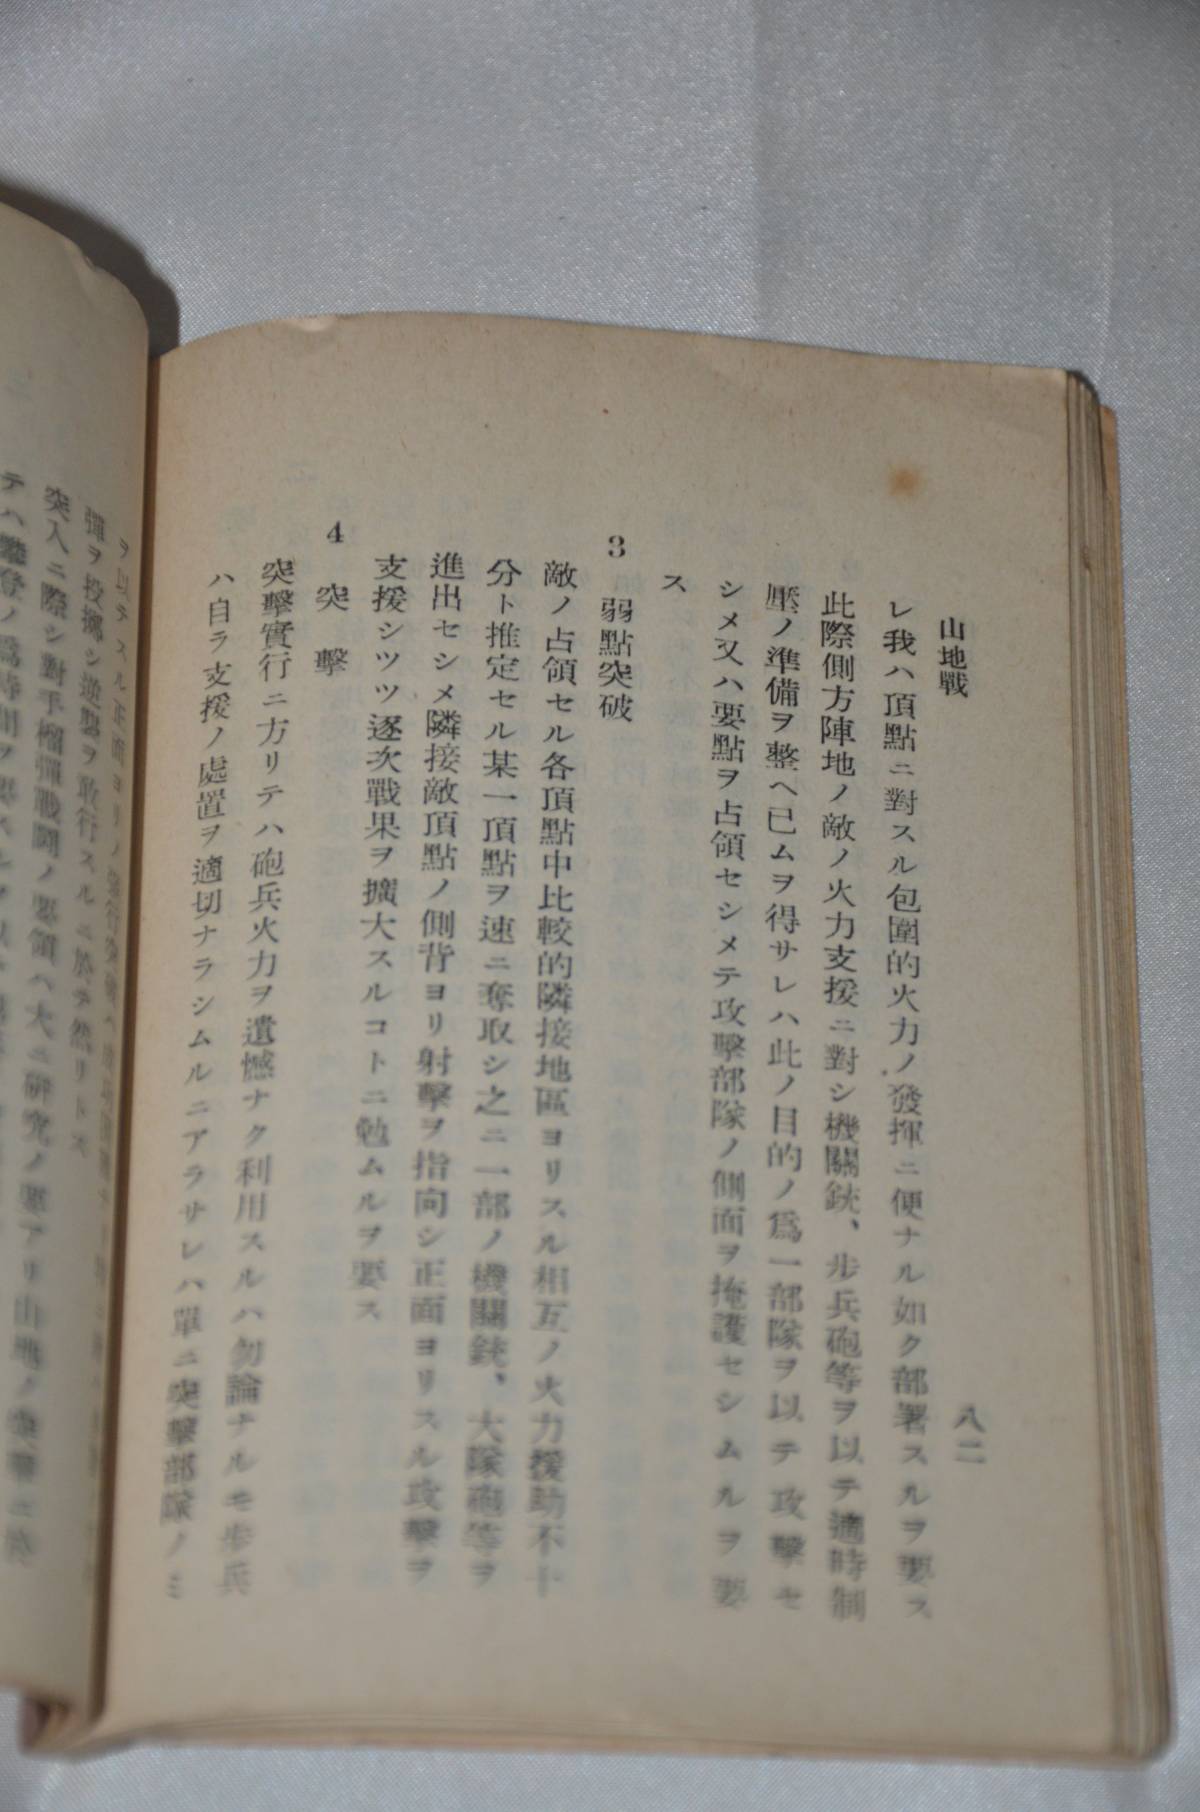 山地戰
八二
レ我ハ頂點ニ對スル包圍的火力ノ發揮ニ便ナル如ク部署スルヲ要ス
此際側方陣地ノ敵ノ火力支援ニ對シ機關銃、步兵砲等ヲ以テ適時制
壓ノ準備ヲ整ヘ已ムヲ得サレハ此ノ目的ノ爲一部隊ヲ以テ攻擊セ
シメ又ハ要點ヲ占領セシメテ攻擊部隊ノ側面ヲ掩護セシムルヲ要
ス
3 弱點突破
敵ノ占領セル各頂點中比較的隣接地區ヨリスル相互ノ火力援助不十
分ト推定セル某一頂點ヲ速ニ奪取シ之ニ一部ノ機關銃、大隊砲等ヲ
進出セシメ隣接敵頂點ノ側背ヨリ射擊ヲ指向シ正面ヨリスル攻擊ヲ
支援シツツ逐次戰果ヲ擴大スルコトニ勉ムルヲ要ス
4 突擊
突擊實行ニ方リテハ砲兵火力ヲ遺憾ナク利用スルハ勿論ナルモ步兵
ハ自ラ支援ノ處置ヲ適切ナラシムルニアラサレハ單ニ突擊部隊ノミ
ヲ以テスル正面ヨリノ强行突破ハ
彈ヲ投擲シ逆襲ヲ敢行スルニ於テ然リトス
突入ニ際シ對手榴彈戰鬪ノ要領ハ大ニ硏究ノ要アリ山地ノ突擊ニ
テハ攀登ノ爲時間ヲ要スルヲ以テ